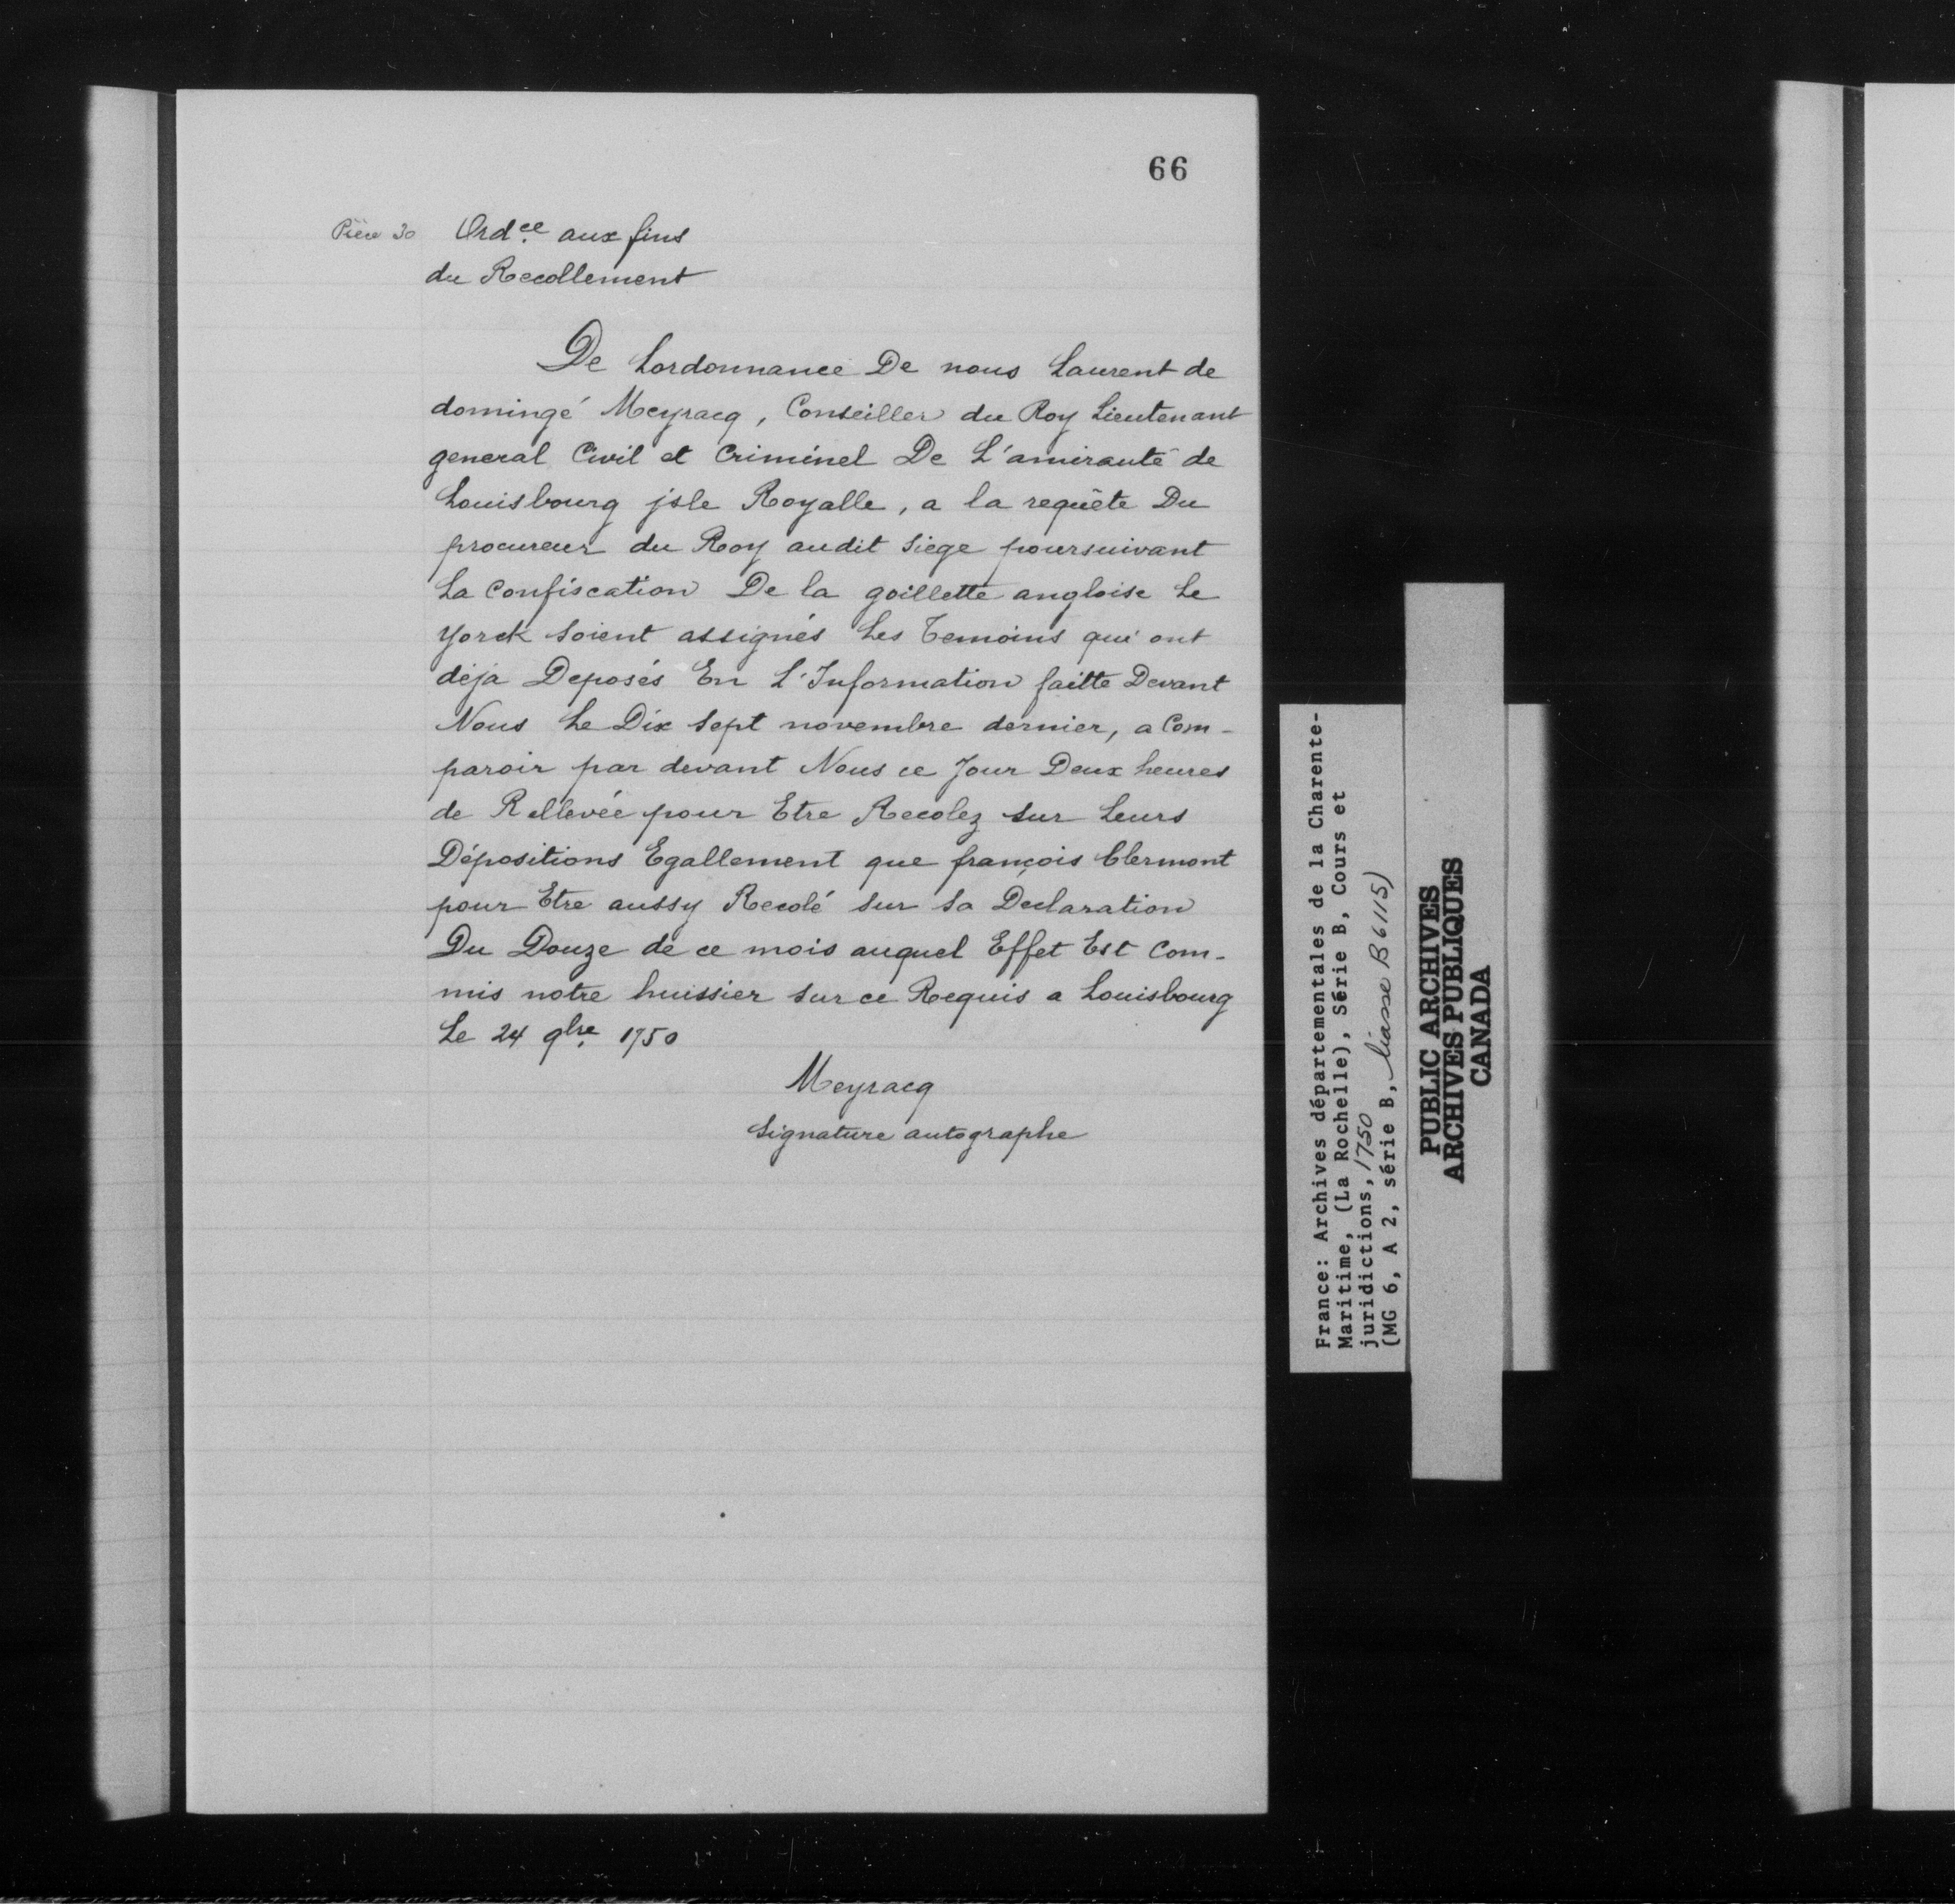 66
Pièce 30 Ordce aux fins
du Recollement
De Lordonnance De nous Laurent de
domingé Meyracq, Conseiller du Roy Lieutenant
general Civil et Criminel De L'amirauté de
Louisbourg jsle Royalle, a la requête Du
procureur du Roy audit siege poursuivant
La Confiscation De la goillette angloise Le
Yorck soient assignés Les Temoins qui ont
déja Deposés En L'Information faitte Devant
Nous Le Dix sept novembre dernier, a Com-
paroir par devant Nous ce Jour Deux heures
de Rellevée pour Etre Recolez sur Leurs
Dépositions Egallement que françois Clermont
pour Etre aussy Recolé sur sa Declaration
Du Douze de ce mois auquel Effet Est Com-
mis notre huissier sur ce Requis a Louisbourg
Le 24 9bre 1750
Meyracq
Signature autographe
France: Archives départementales de la Charente-
Maritime, (La Rochelle), Série B, Cours et
juridictions, 1750
(MG 6, A 2, série B, liasse B 6115)
PUBLIC ARCHIVES
ARCHIVES PUBLIQUES
CANADA